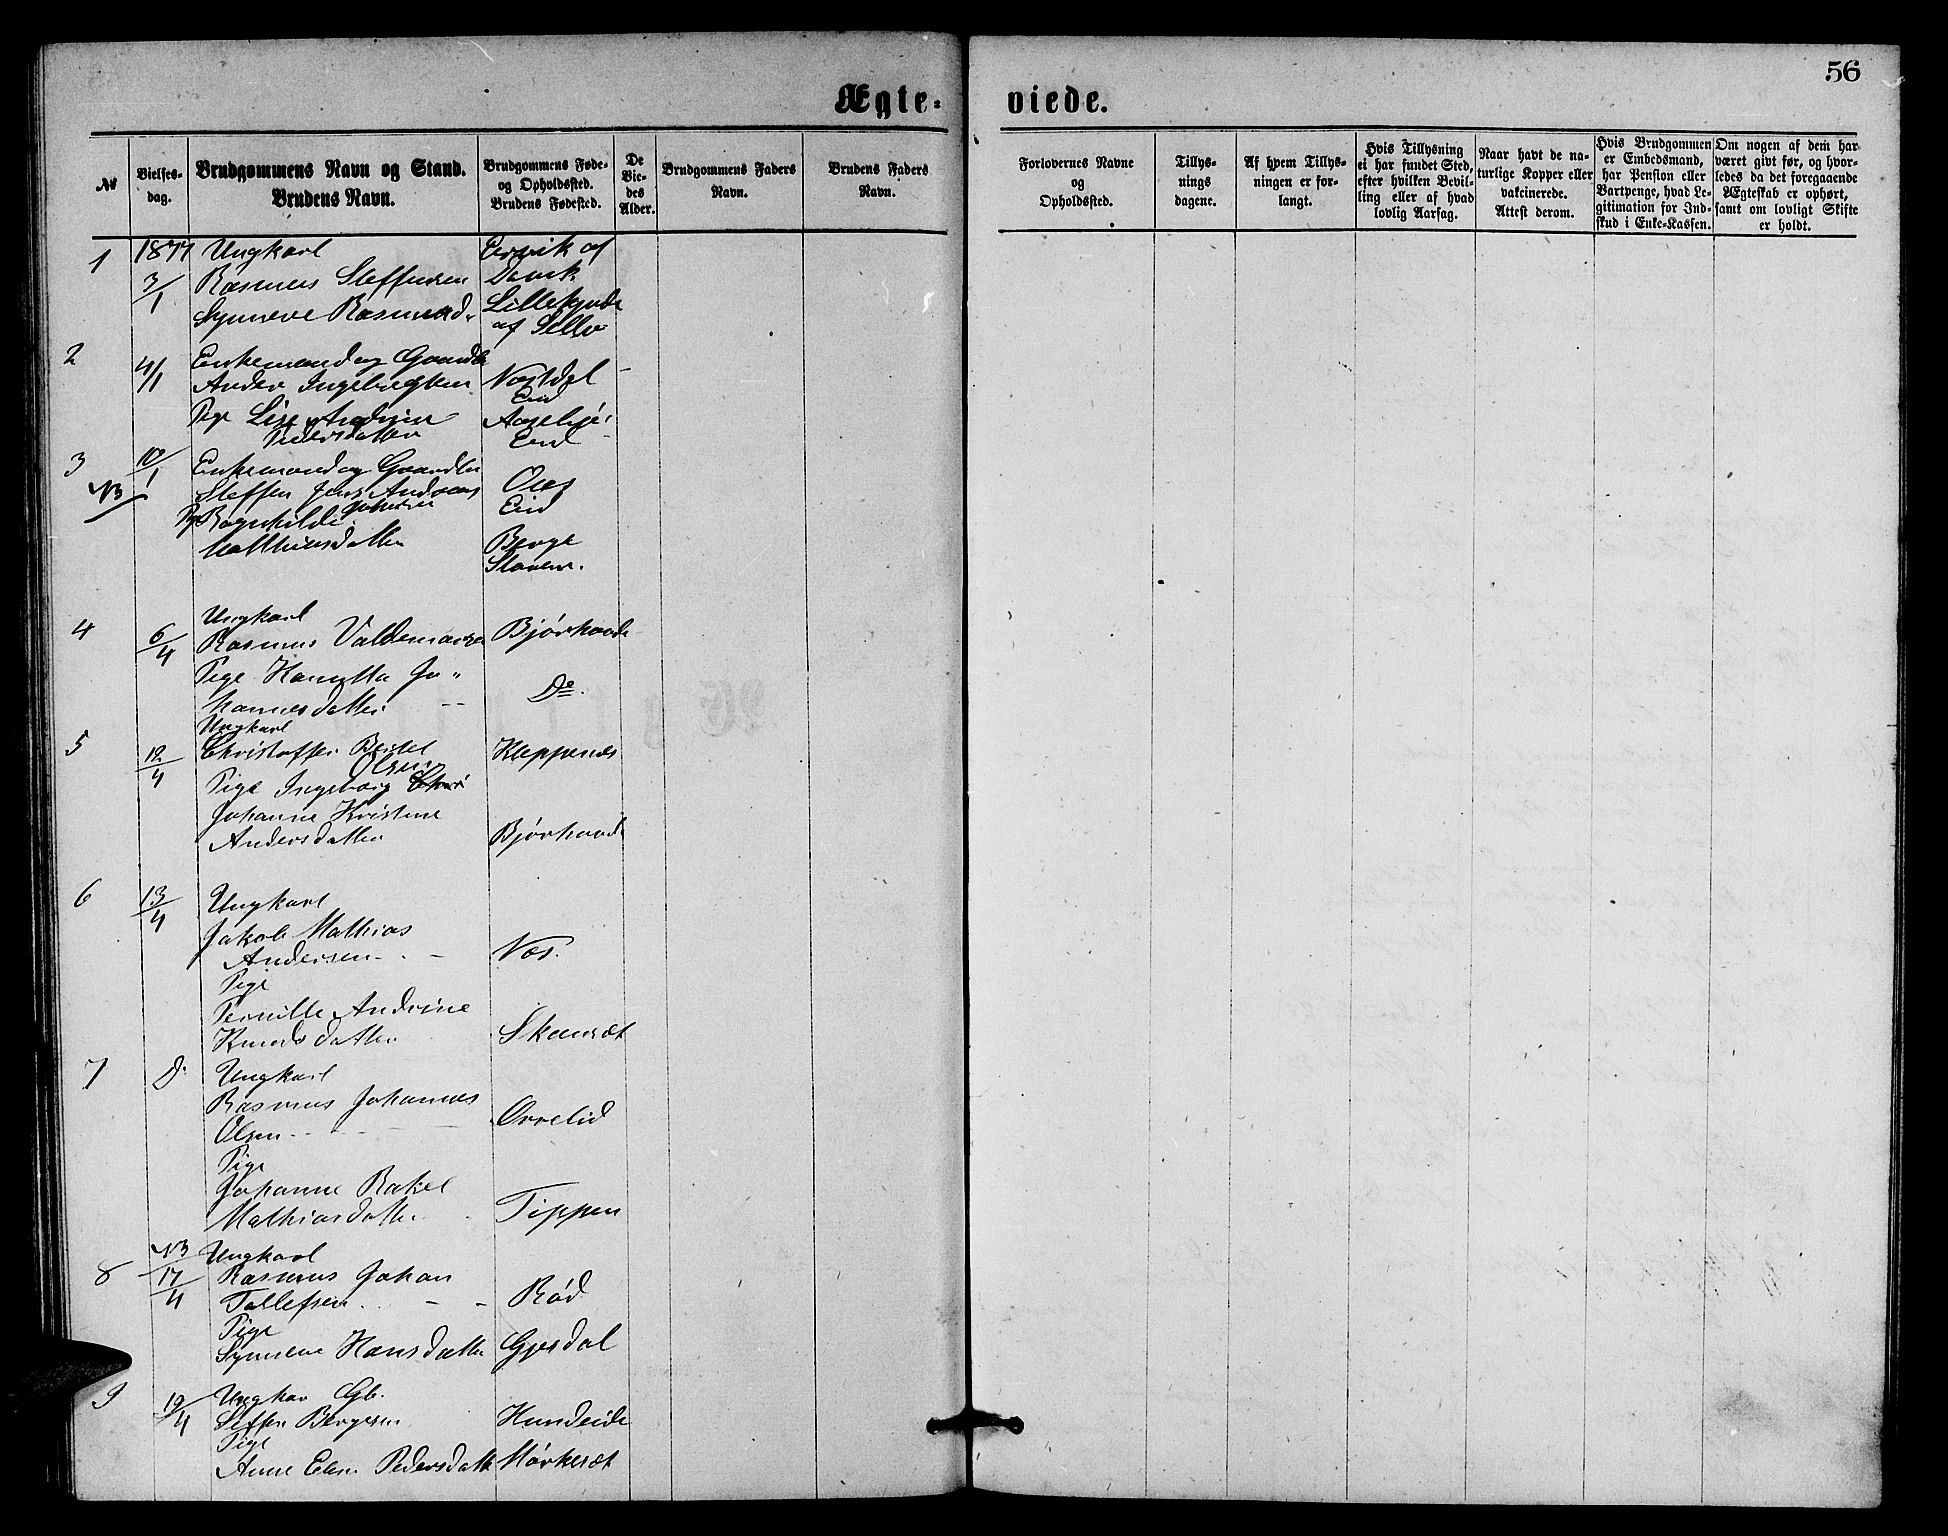 56
Ægte- viede.
№
Vielses-
dag.
Brudgommens Navn og Stand.
Brudens Navn.
Brudgommens Føde-
og Opholdssted.
Brudens Fødested.
De
Vie-
des
Alder.
Brudgommens Faders
Navn.
Brudens Faders
Navn.
Forlovernes Navne
og
Opholdssted.
Tillys-
nings
dagene.
Af hvem Tillys-
ningen er for-
langt.
Hvis Tillysning
ei har fundet Sted,
efter hvilken Bevil-
ling eller af hvad
lovlig Aarsag.
Naar havt de na-
turlige Kopper eller
vakcinerede.
Attest derom.
Hvis Brudgommen
er Embedsmand,
har Pension eller
Vartpenge, hvad Le-
gitimation for Ind-
skud i Enke-Kassen.
Om nogen af dem har
været givt før, og hvor-
ledes da det foregaaende
Ægteskab er ophørt,
samt om lovligt Skifte
er holdt.
1 1877 Ungkarl Ervik af
3/1 Rasmus Steffensen
Synneve Rasmusd. Lillebynde
af Sellø
2 4/1 Enkemand og Gaardb
Anders Ingebregtsen Nordal
Eid
Pige Lise Andrine
Pedersdatter Eid
3 10/1 Enkemand og Gaardbr
NB Steffen Jens Andreas Oos
Johnsen Eid
Pige Ragnhilde
Matthiasdatter Berge
4 6/4 Ungkarl
Rasmus Valdemarsen Bjørhovde
Pige Hanna Jo-
hannesdatter -- Do.
5 12/4 Ungkarl
Christoffer Bertel Kleppenæs
Olsen
Pige Ingeborg
Johanne Kristine
Andersdatter Bjørhovde
6 13/4 Ungkarl
Jakob Mathias
Andersen - - Nos.
Pige
Pernille Andrine
Knudsdatter Skansæt
7 Do Ungkarl
Rasmus Johannes
Olsen - - - Orrelid
Pige
Johanne Rakel
Mathiasdatter Tippen
NB Ungkarl
8 17/4 Rasmus Johan
Tollefsen - - Rød
Pige
Synneve Hansdatter Gjesdal
9 19/4 Ungkar Gb.
Steffen Bergesen Hundeide
Pige
Anne Elen Pedersdatt Mørkesæt